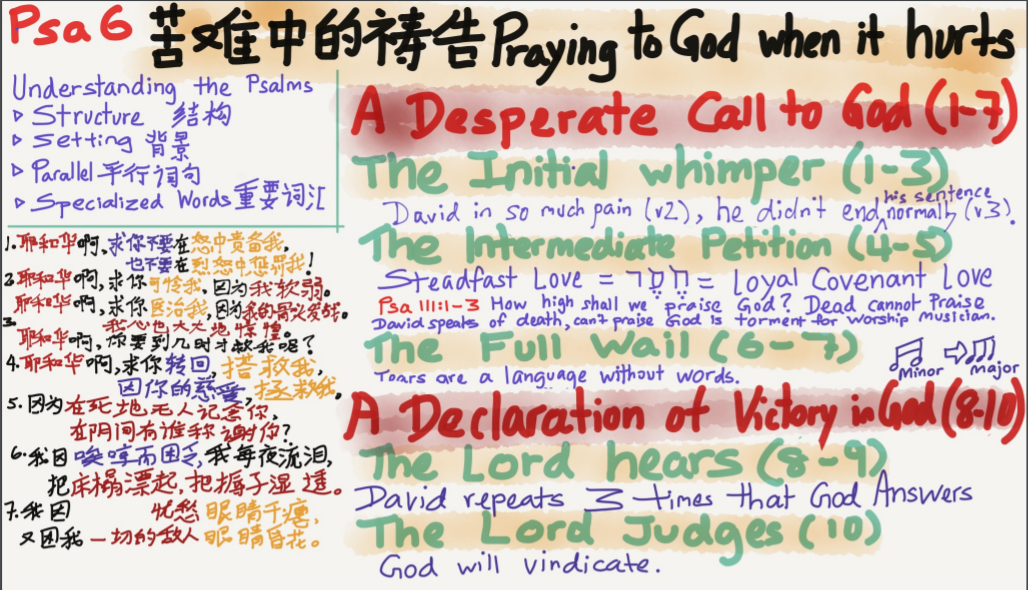 Psa 6 苦难中的祷告 Praying to God when it hurts
Understanding the Psalms
▷ Structure 结构
▷ Setting 背景
▷ Parallel 平行词句
▷ Specialized Words 重要词汇
1. 耶和华啊,求你不要在怒中责备我,
也不要在烈怒中惩罚我!
2. 耶和华啊,求你可怜我,因为我软弱。
耶和华啊,求你医治我,因为我的骨头发战。
3. 我心也大大地惊惶。
耶和华啊,你要到几时才救我呢?
4. 耶和华啊,求你转回,搭救我,
因你的慈爱,拯救我。
5. 因为在死地无人记念你,
在阴间有谁称谢你?
6. 我因唉哼而困乏,我每夜流泪,
把床榻漂起,把褥子湿透。
7. 我因忧愁眼睛干瘪,
又因我一切的敌人眼睛昏花。
A Desperate Call to God (1-7)
The Initial whimper (1-3)
David in so much pain (v2), he didn't end his sentence normally (v3).
The Intermediate Petition (4-5)
Steadfast Love = חֶסֶד = Loyal Covenant Love
Psa 111:1-3 How high shall we praise God? Dead cannot Praise
David speaks of death, can't praise God is torment for worship musician.
The Full Wail (6-7)
Tears are a language without words.
Minor ⇨ major
A Declaration of Victory in God (8-10)
The Lord hears (8-9)
David repeats 3 times that God Answers
The Lord Judges (10)
God will vindicate.